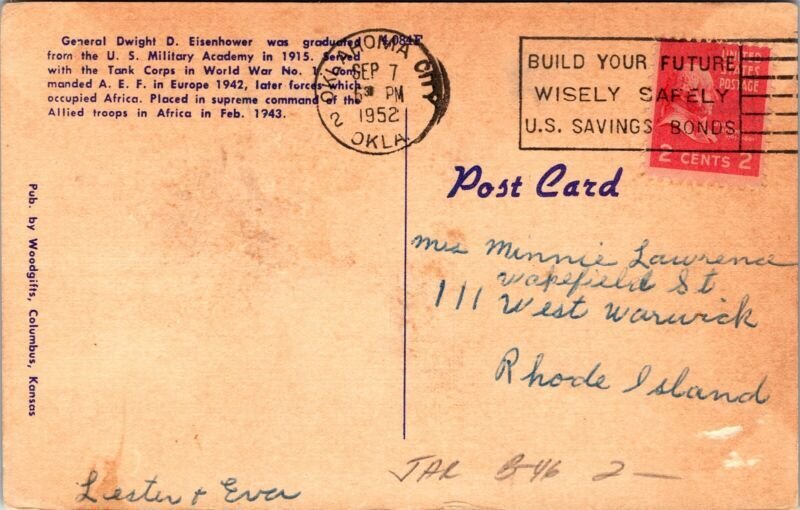 General Dwight D. Eisenhower was graduated
from the U. S. Military Academy in 1915. Served
with the Tank Corps in World War No. 1. Com
manded A. E. F. in Europe 1942, later forces which
occupied Africa. Placed in supreme command of the
Allied troops in Africa in Feb. 1943.
OKLAHOMA CITY
SEP 7
PM
1952
2 OKLA.
BUILD YOUR FUTURE
WISELY SAFELY
U.S. SAVINGS BONDS
UNITED
STATES
POSTAGE
2 CENTS 2
Post Card
Pub. by Woodgifts, Columbus, Kansas
Mrs Minnie Lawrence
Wakefield St
111 West Warwick
Rhode Island
Lester & Eva
JAR 2 —